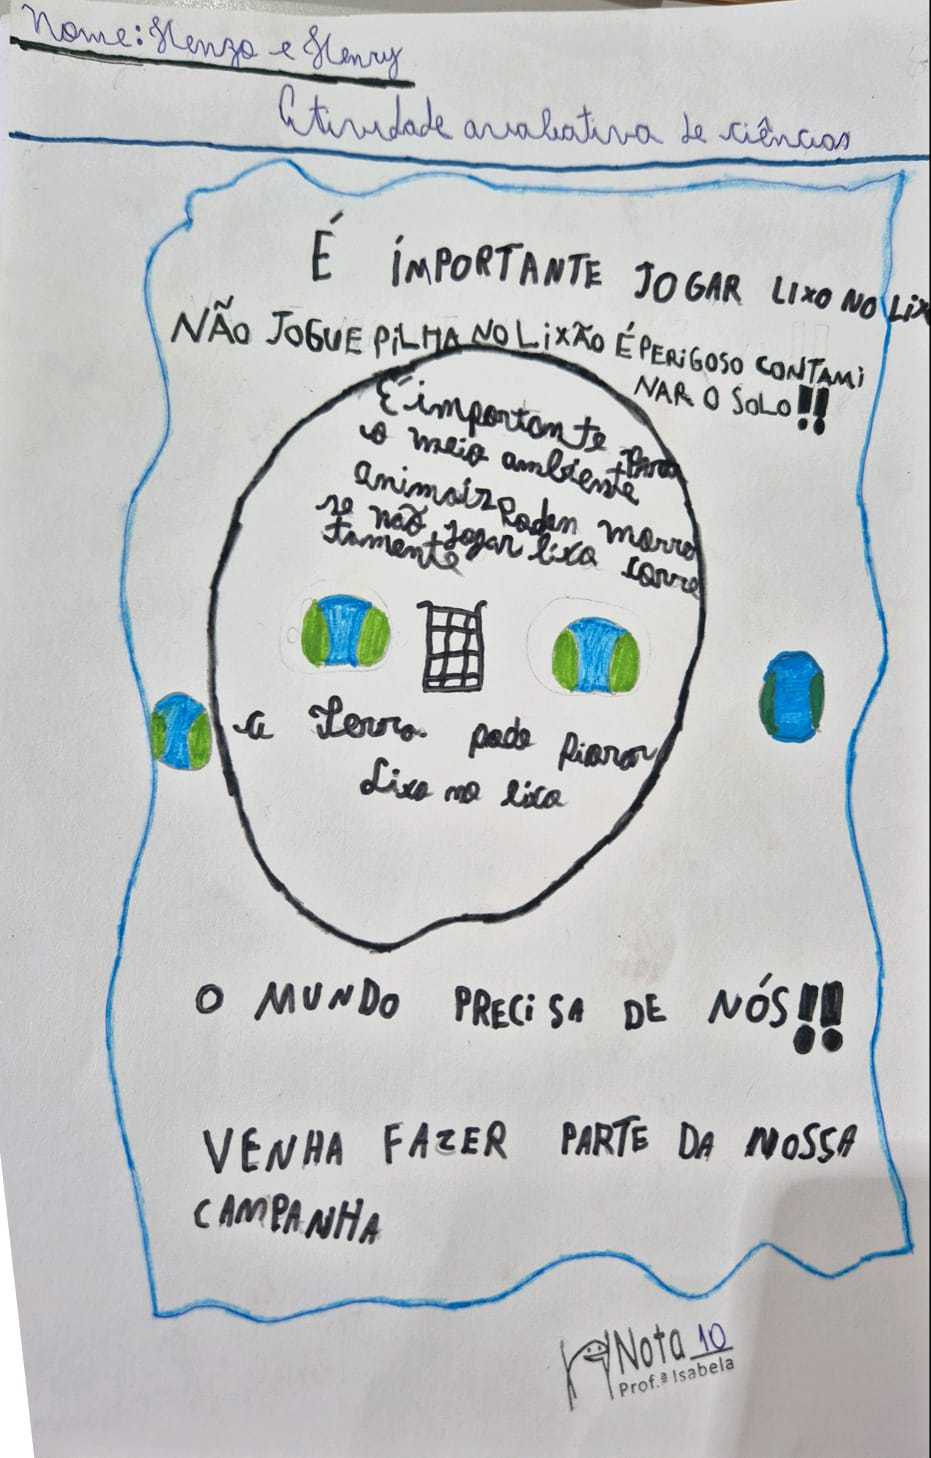 Nome: Henzo e Henry
Atividade avaliativa de ciências
É IMPORTANTE JOGAR LIXO NO LIX
NÃO JOGUE PILHA NO LIXÃO É PERIGOSO CONTAMI
NAR O SOLO!!
É importante para
o meio ambiente
animais Podem morre
se não jogar lixo corre
tamente
a Terra pode Piorar
Lixo no lixo
O MUNDO PRECISA DE NÓS!!
VENHA FAZER PARTE DA NOSSA
CAMPANHA
Nota 10
Prof.ª Isabela